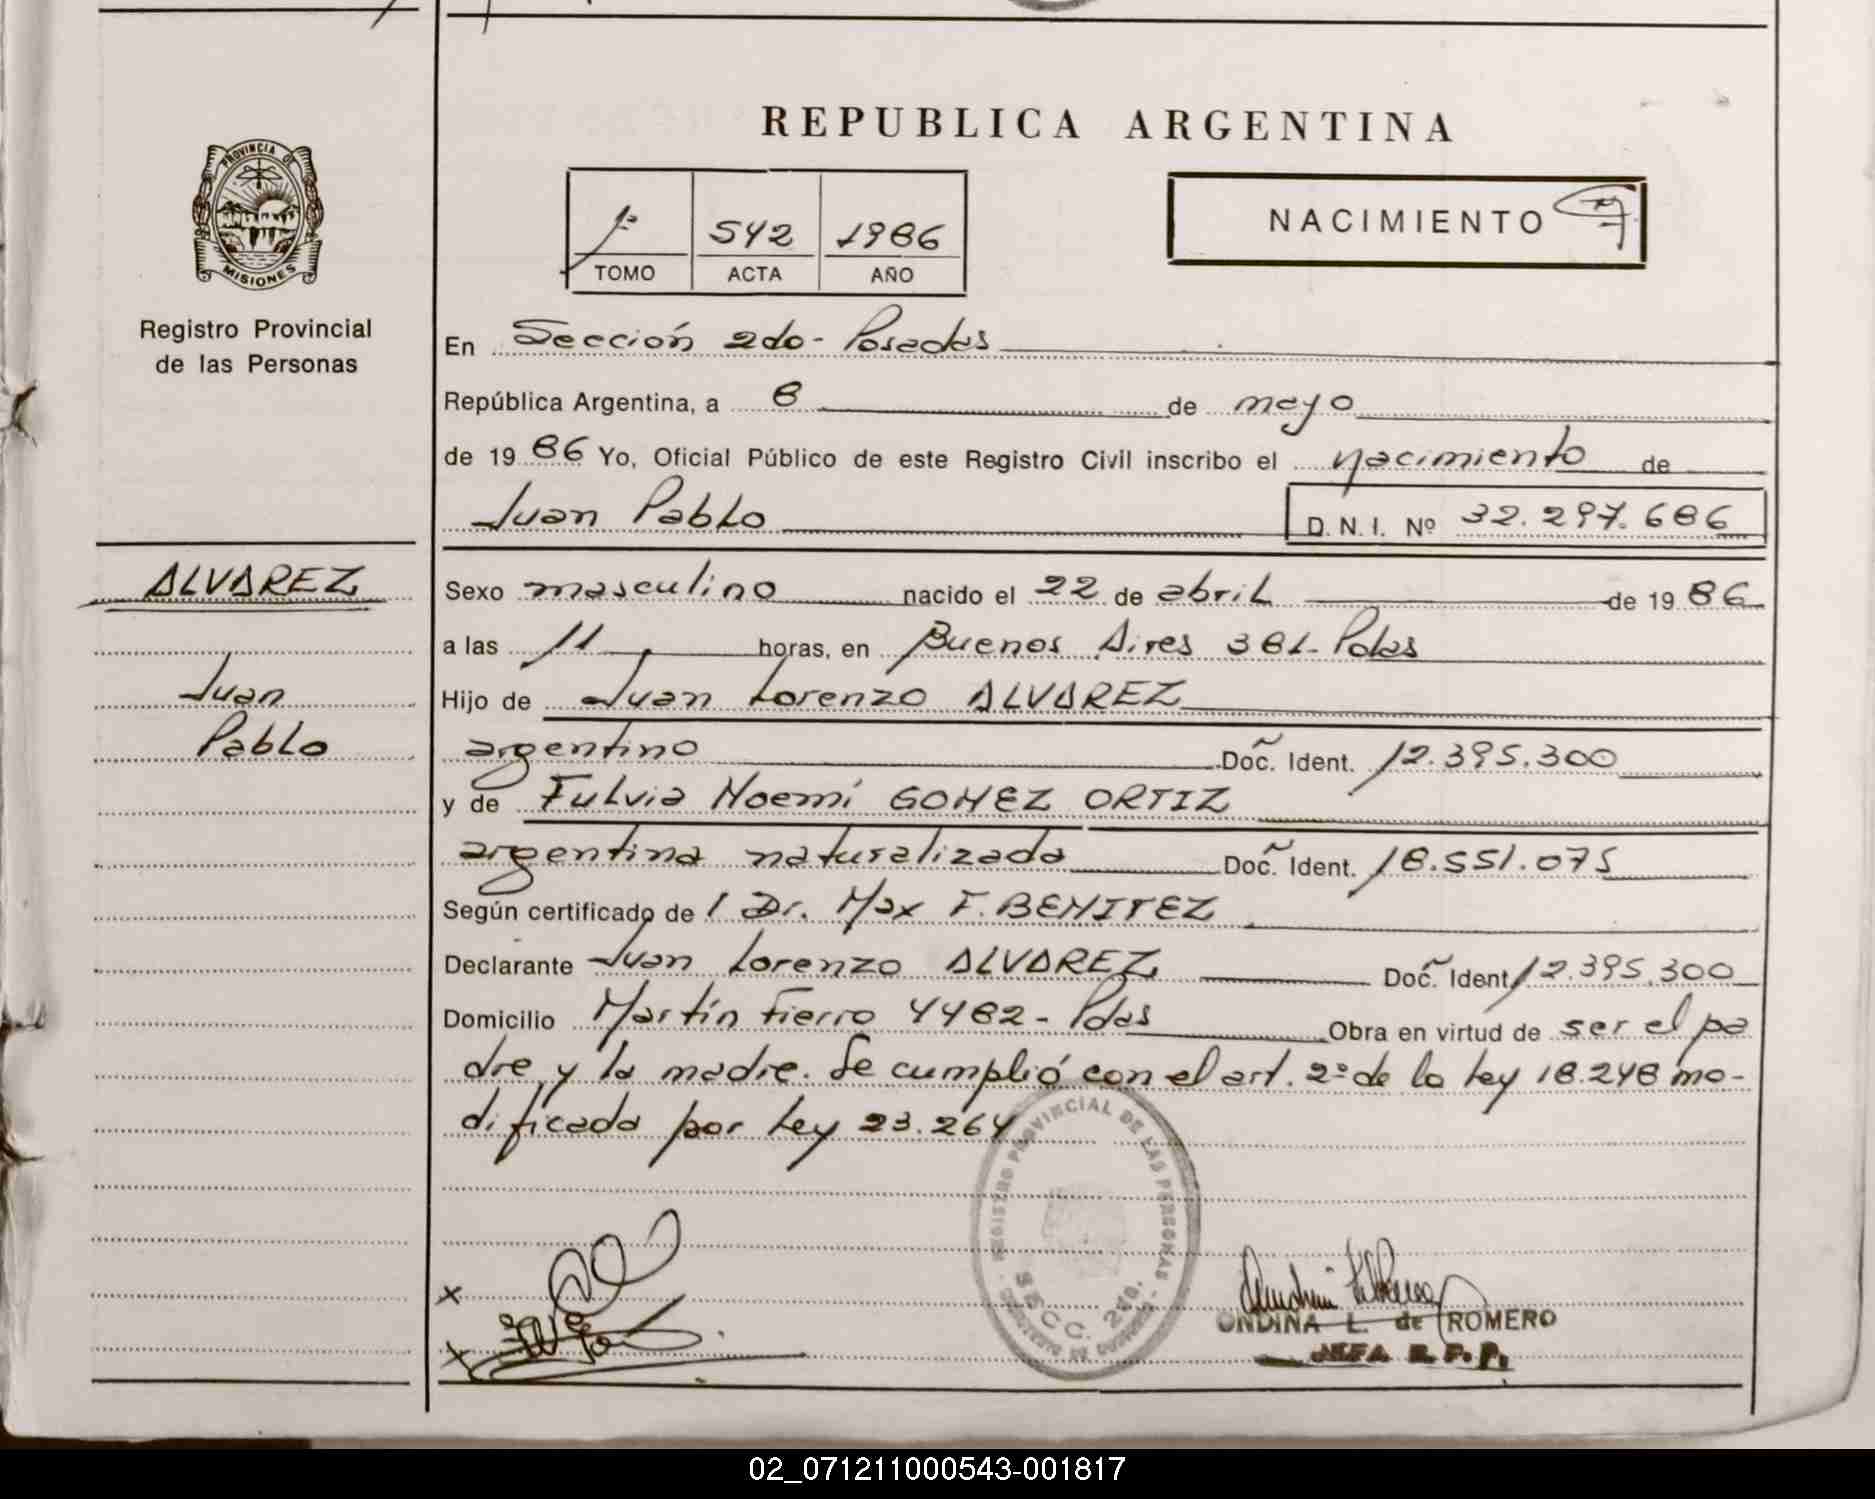 REPUBLICA ARGENTINA
PROVINCIA DE
MISIONES
Registro Provincial
de las Personas
1º 542 1986
TOMO ACTA AÑO
NACIMIENTO
En Sección 2do - Posadas
República Argentina, a 8 de mayo
de 1986 Yo, Oficial Público de este Registro Civil inscribo el nacimiento de
Juan Pablo D.N.I. Nº 32.297.686
ALVAREZ
Juan
Pablo
Sexo masculino nacido el 22 de abril de 1986
a las 11 horas, en Buenos Aires 381- Pdas
Hijo de Juan Lorenzo ALVAREZ
argentino Doc. Ident. 12.395.300
y de Fulvia Noemí GOMEZ ORTIZ
argentina naturalizada Doc. Ident. 18.551.075
Según certificado de l Dr. Max F. BENITEZ
Declarante Juan Lorenzo ALVAREZ Doc. Ident. 12.395.300
Domicilio Martín Fierro 4482 - Pdas Obra en virtud de ser el pa
dre y la madre. Se cumplió con el art. 2º de la ley 18.248 mo-
dificada por ley 23.264
REGISTRO PROVINCIAL DE LAS PERSONAS
SECC. 2da.
ONDINA L. de ROMERO
JEFA R. P. P.
02_071211000543-001817